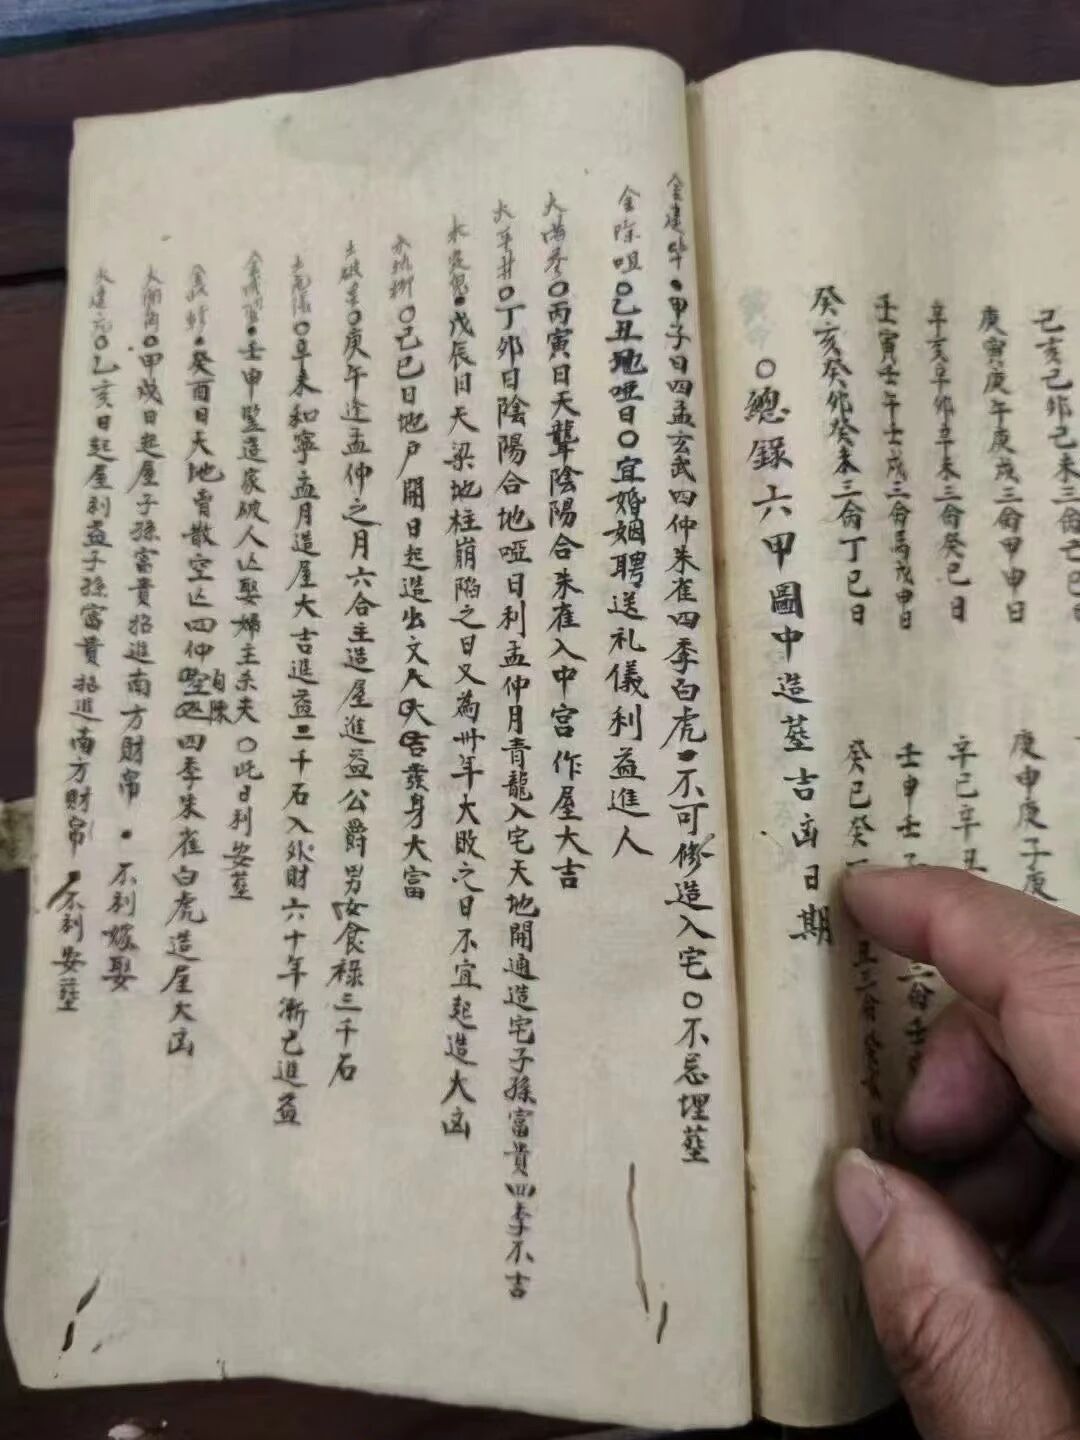 己亥己卯己未三合
庚寅庚午庚戌三合甲申日
辛亥辛卯辛未三合癸巳日
壬寅壬午壬戌三合
癸亥癸卯癸未三合丁巳日
庚申庚子庚
辛巳辛丑
壬申壬子
癸巳癸
○總錄六甲圖中造葬吉凶日期
金建 甲子日四孟玄武四仲朱雀四季白虎不可修造入宅○不忌埋葬
金除 ○乙丑地啞日○宜婚姻聘送礼儀利益進人
火滿 ○丙寅日天聾陰陽合朱雀入中宮作屋大吉
火平井○丁卯日陰陽合地啞日利孟仲月青龍入宅天地開通造宅子孫富貴四季不吉
木定鬼 戊辰日天梁地柱崩陷之日又為卅年大敗之日不宜起造大凶
木執柳○己巳日地戶開日起造出文人大吉發身大富
土破星○庚午逢孟仲之月六合主造屋進益公爵男女食祿三千石
○辛未和寧孟月造屋大吉進益二千石入外財六十年漸已進益
壬申豎造家破人亡娶婦主禾夫○此日利安葬
癸酉日天地 散空亡四仲 四季朱雀白虎造屋大凶
○甲戌日起屋子孫富貴招進南方財帛 不利嫁娶
○乙亥日起屋利益子孫富貴招進南方財帛 不利安葬